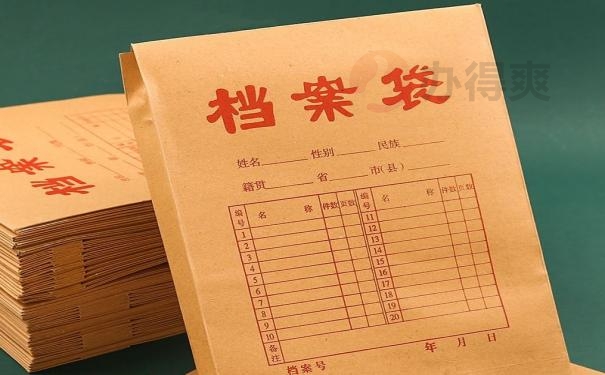 办得爽
档案袋
姓名 性别 民族
籍贯 省 市(县)
编号 名称 件数 页数 编号 名称 件数 页数
1 11
2 12
3 13
4 14
5 15
6 16
7 17
8 18
9 19
10 20
备注
档案号 年 月 日
档案